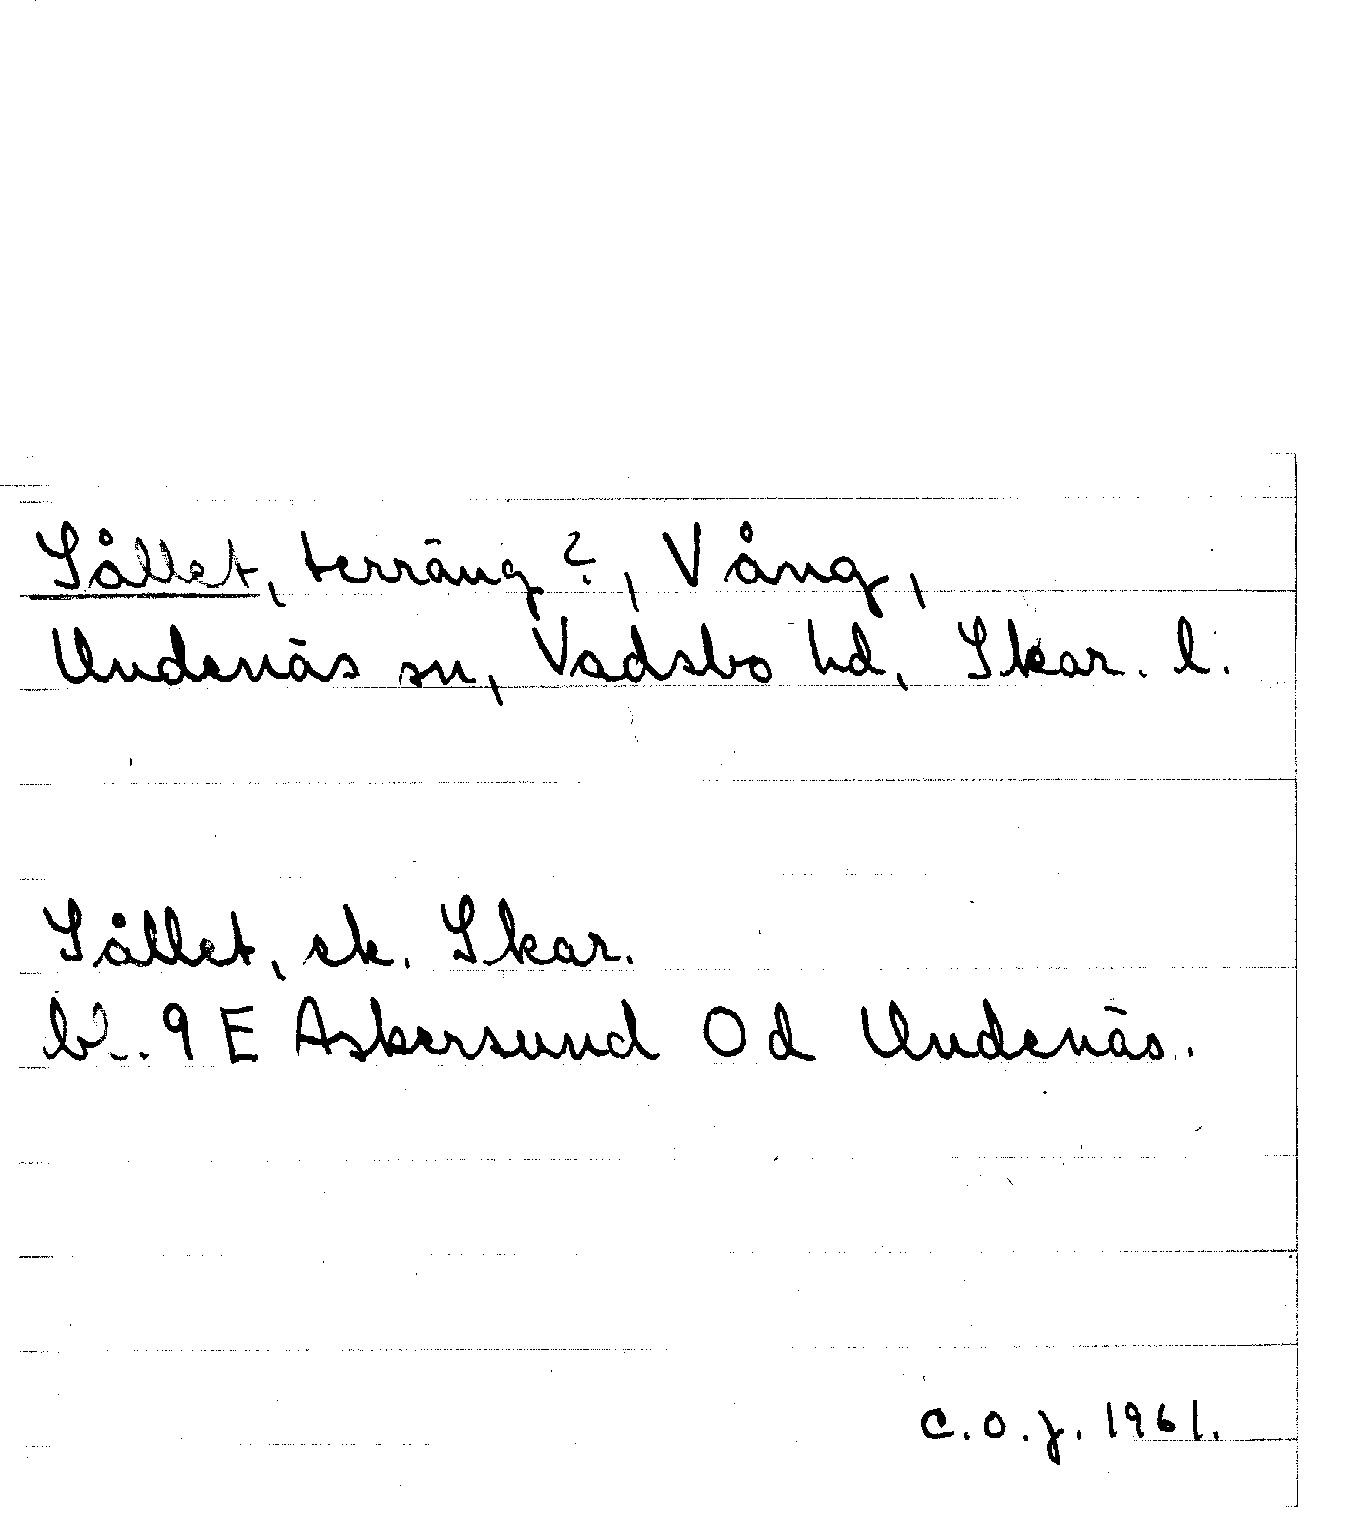 Sållet, terräng?, Vång,
Undenäs sn, Vadsbo hd, Skar. l.
Sållet, ek. Skar.
bl. 9 E Askersund 0d Undenäs.
C.O.J. 1961.